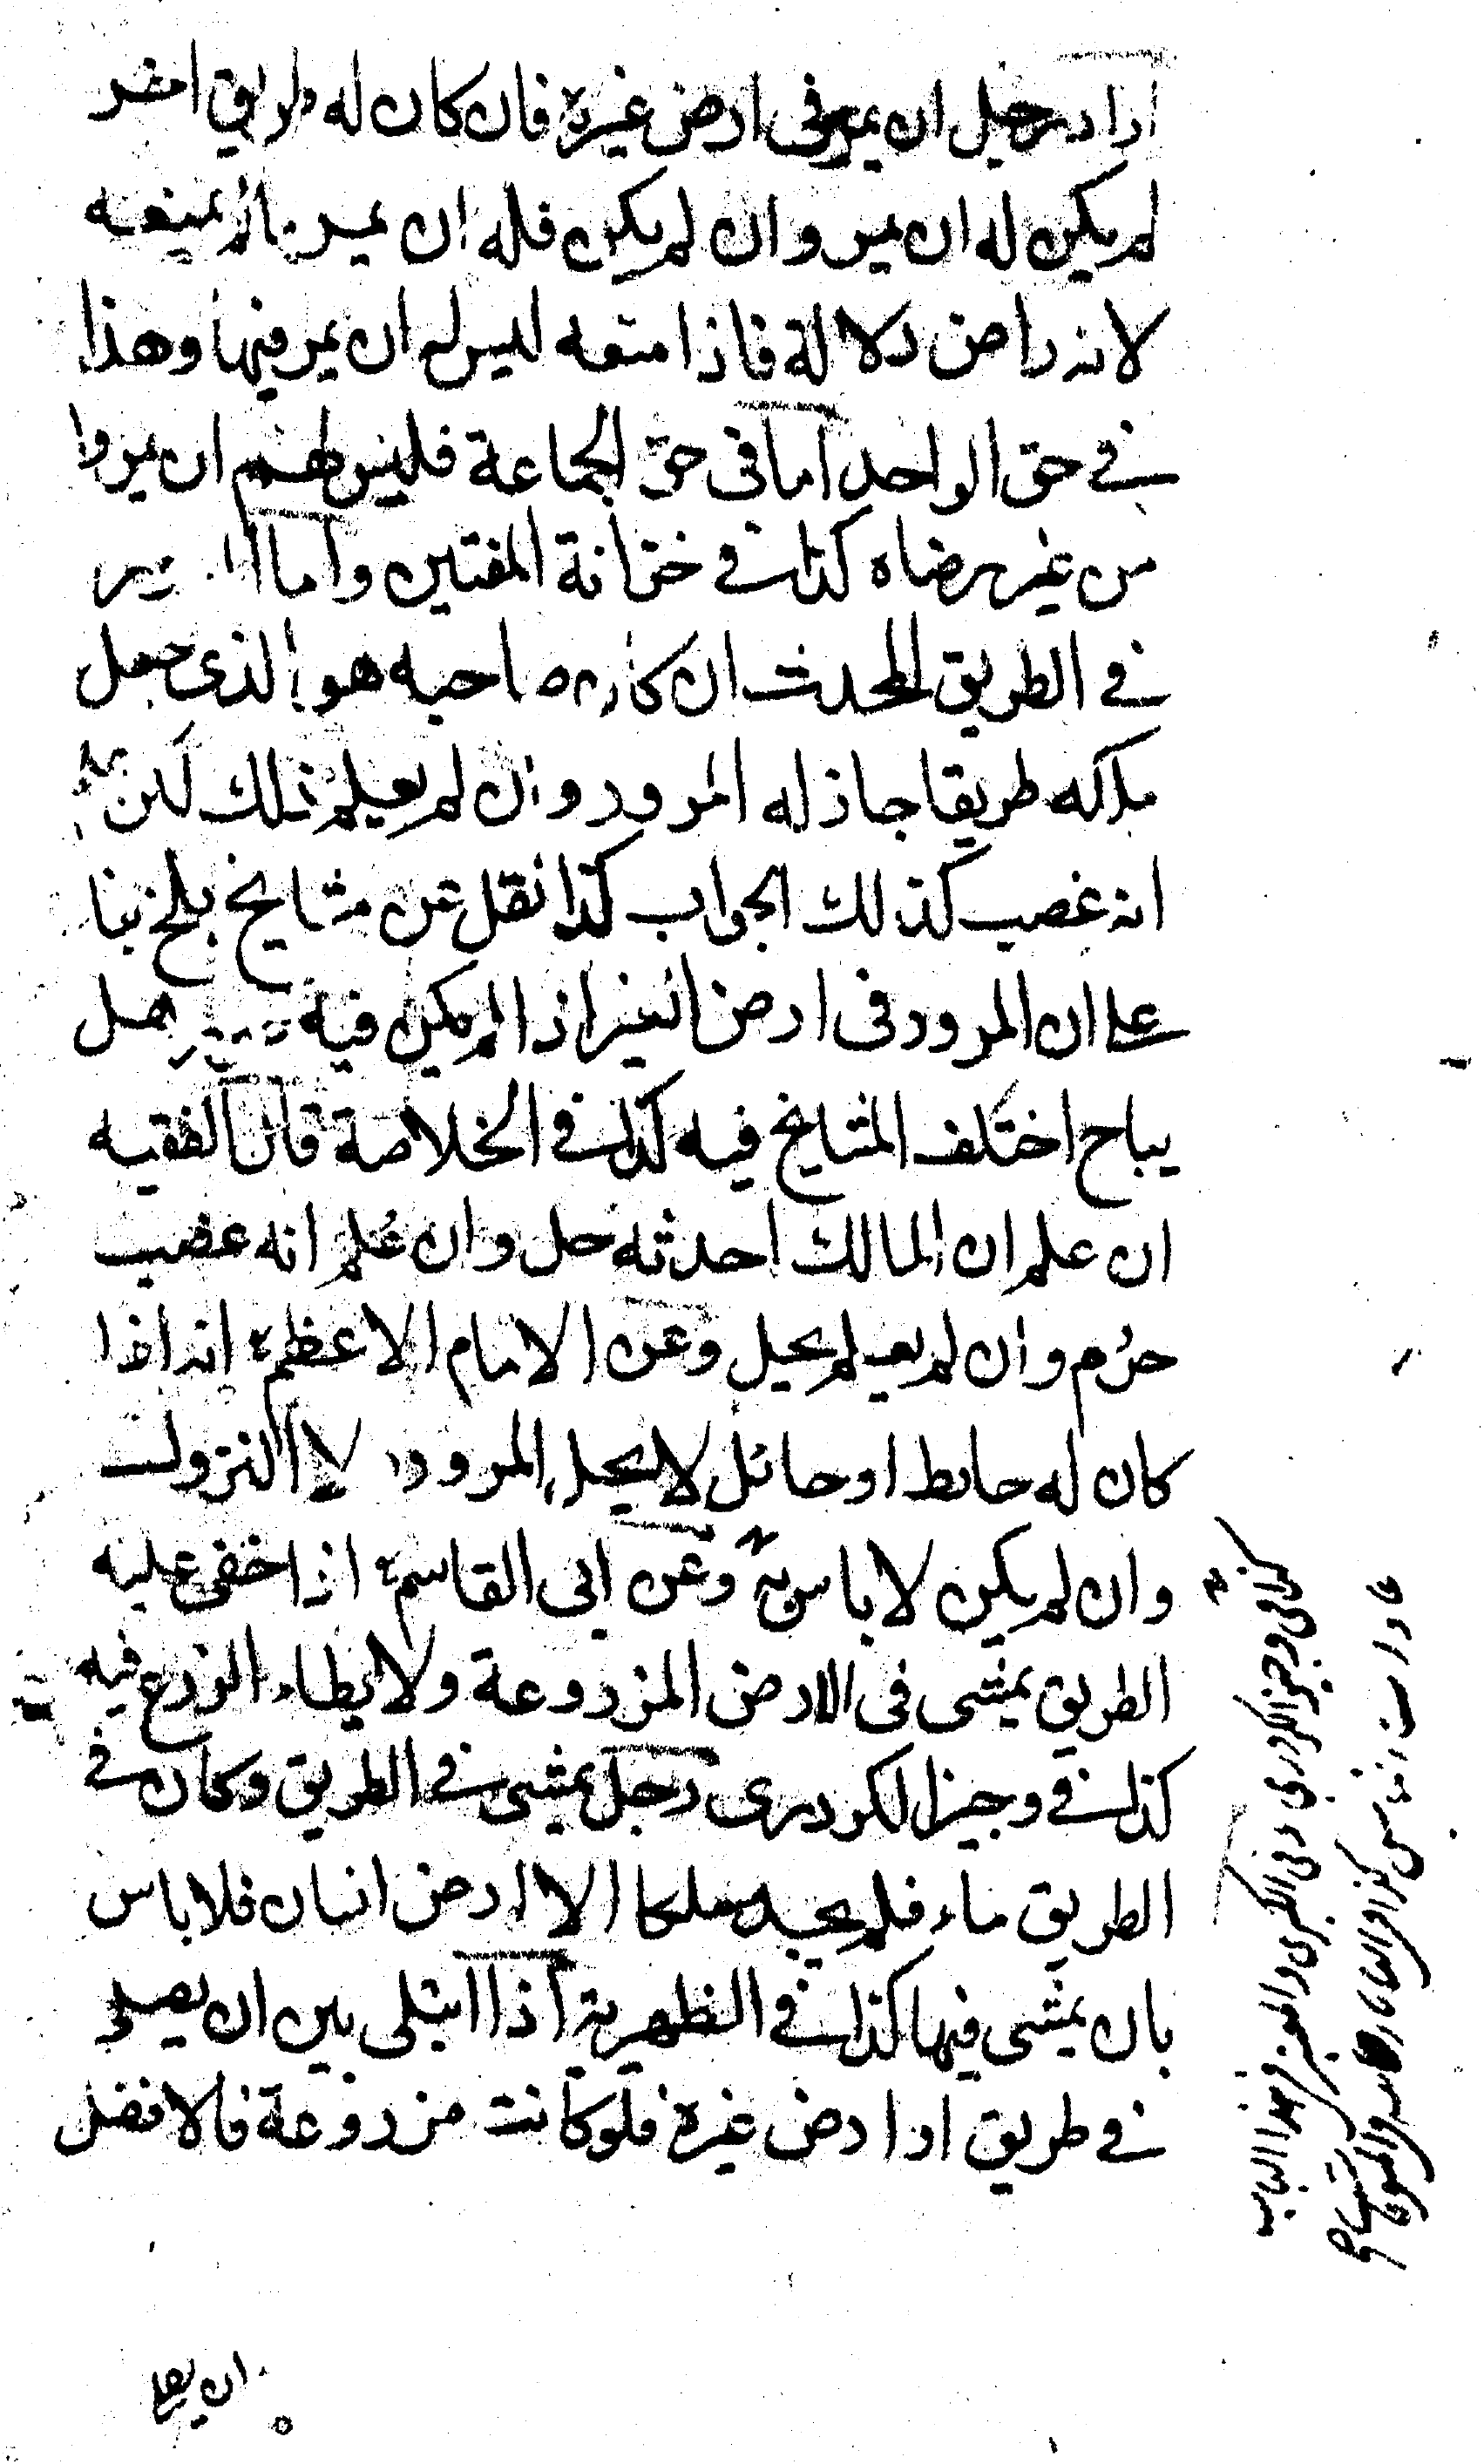 اراد رجل ان يمر فى ارض غيره فان كان له طريق اخر
لم يكن له ان يمر وان لم يكن فله ان يمر مالم يمنعه
لانه راض دلالة فاذا منعه ليس له ان يمر فيها وهذا
في حق الواحد اما فى حق الجماعة فليس لهم ان يمروا
من غير رضاه كذا في خزانة المفتين واما
في الطريق المحدث ان كان صاحبه هو الذى جعل
ملكه طريقا جاز له المرور وان لم يعلم ذلك لكن
انه غصب كذلك الجواب كذا نقل عن مشايخ بلخ بنا
على ان المرور فى ارض الغير اذا لم يكن فيه هل
يباح اختلف المشايخ فيه كذا في الخلاصة قال الفقيه
ان علم ان المالك احدثه حل وان علم انه غصب
حرم وان لم يعلم يحل وعن الامام الاعظم انه اذا
كان له حايط او حائل لا يحل المرور ولا النزول
وان لم يكن لا باس به وعن ابى القاسم اذا خفى عليه
الطريق يمشى فى الارض المزروعة ولا يطاء الزرع فيه
كذا في وجيز الكردرى رجل يمشى في الطريق وكان في
الطريق ماء فلم يجد مسلكا الا ارض انسان فلا باس
بان يمشى فيها كذا في الظهيرية اذا ابتلى بين ان يصلى
في طريق او ارض غيره فلو كانت مزروعة فالافضل
كذا فى وجيز الكردرى وفى الكبرى
هذا الباب
ان يصلى